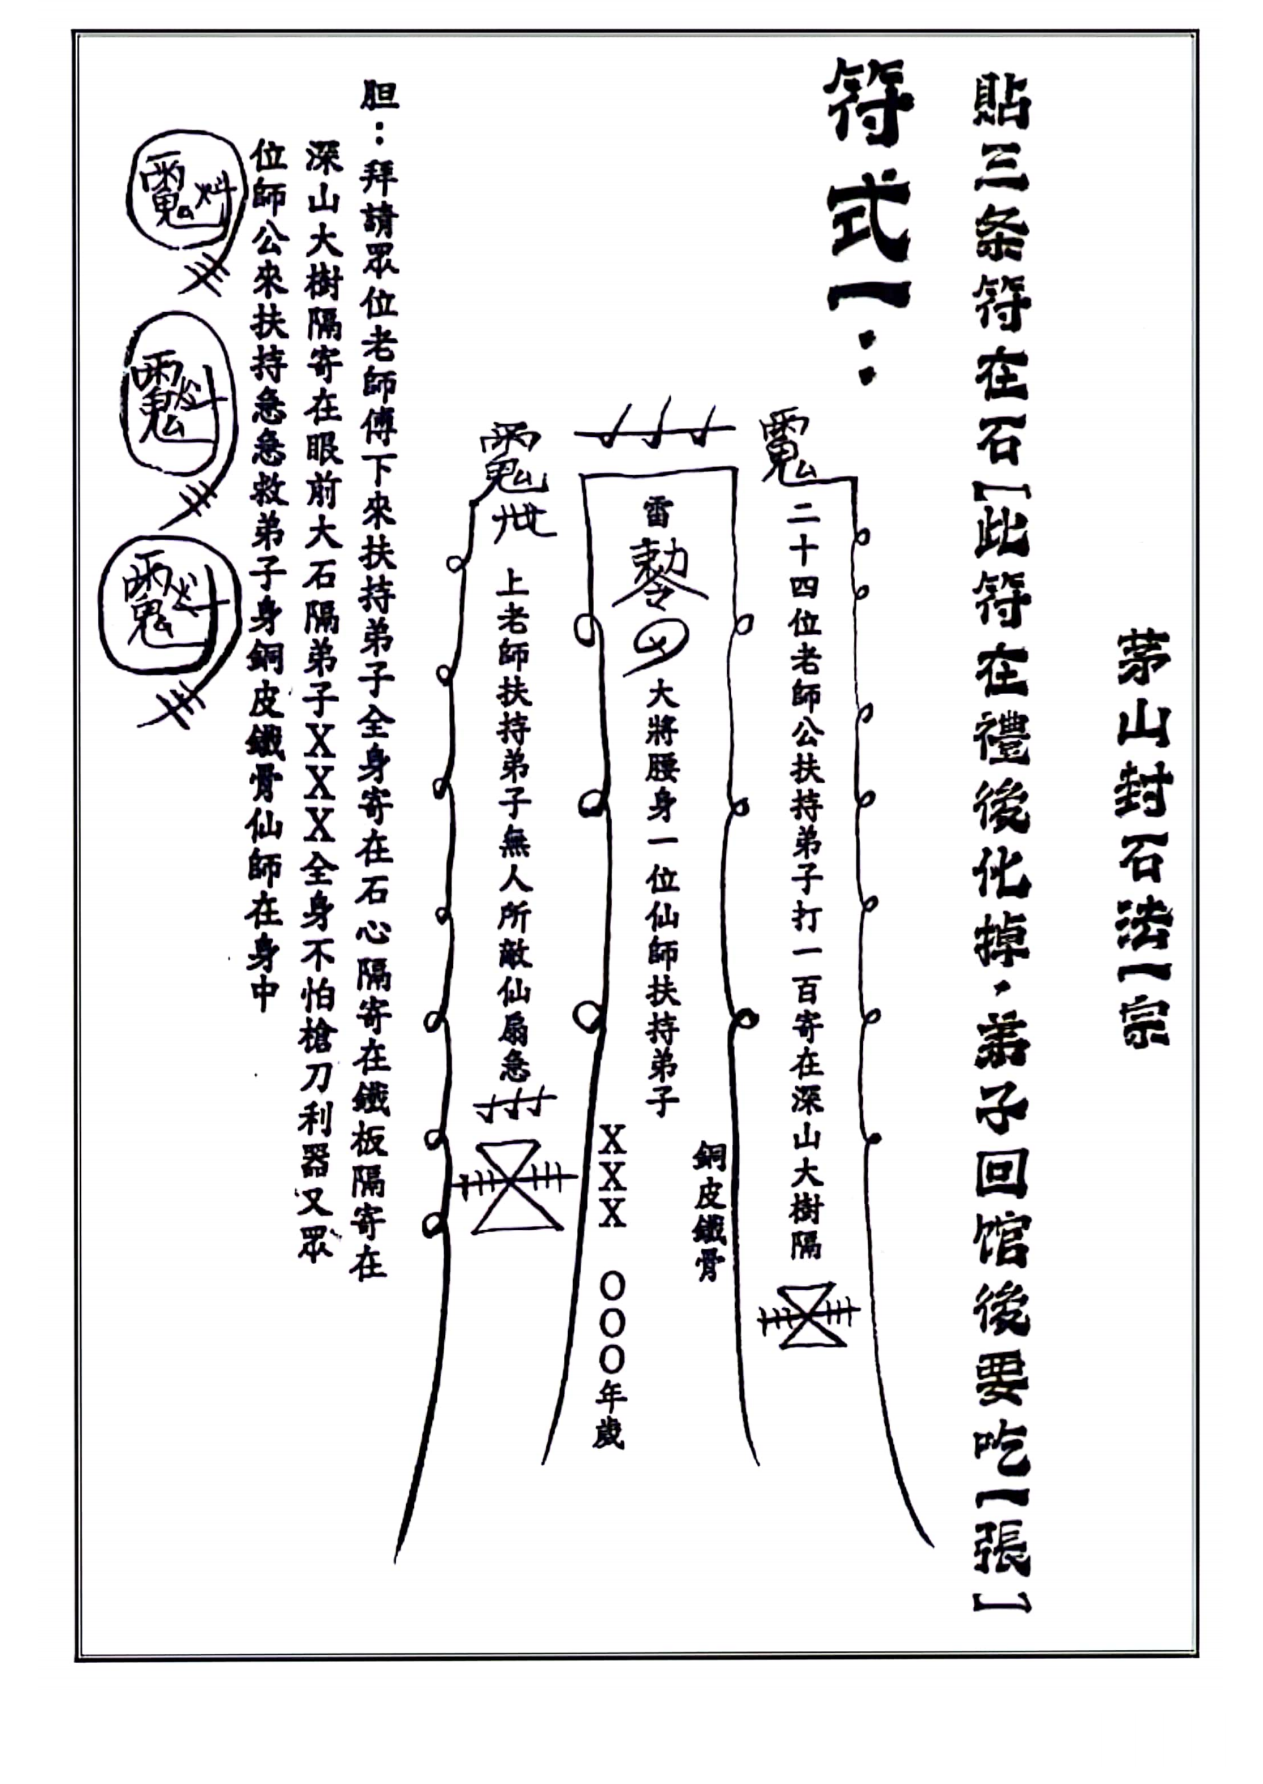 茅山封石法一宗
貼三条符在石[此符在禮後化掉，弟子回馆後要吃一張]
符式一：
二十四位老師公扶持弟子打一百寄在深山大樹隔
雷
敕令
大將腰身一位仙師扶持弟子
銅皮鐵骨
XXX OOO年歲
上老師扶持弟子無人所敵仙扇急
胆：拜請眾位老師傅下來扶持弟子全身寄在石心隔寄在鐵板隔寄在
深山大樹隔寄在眼前大石隔弟子XXX全身不怕槍刀利器又眾
位師公來扶持急急救弟子身銅皮鐵骨仙師在身中